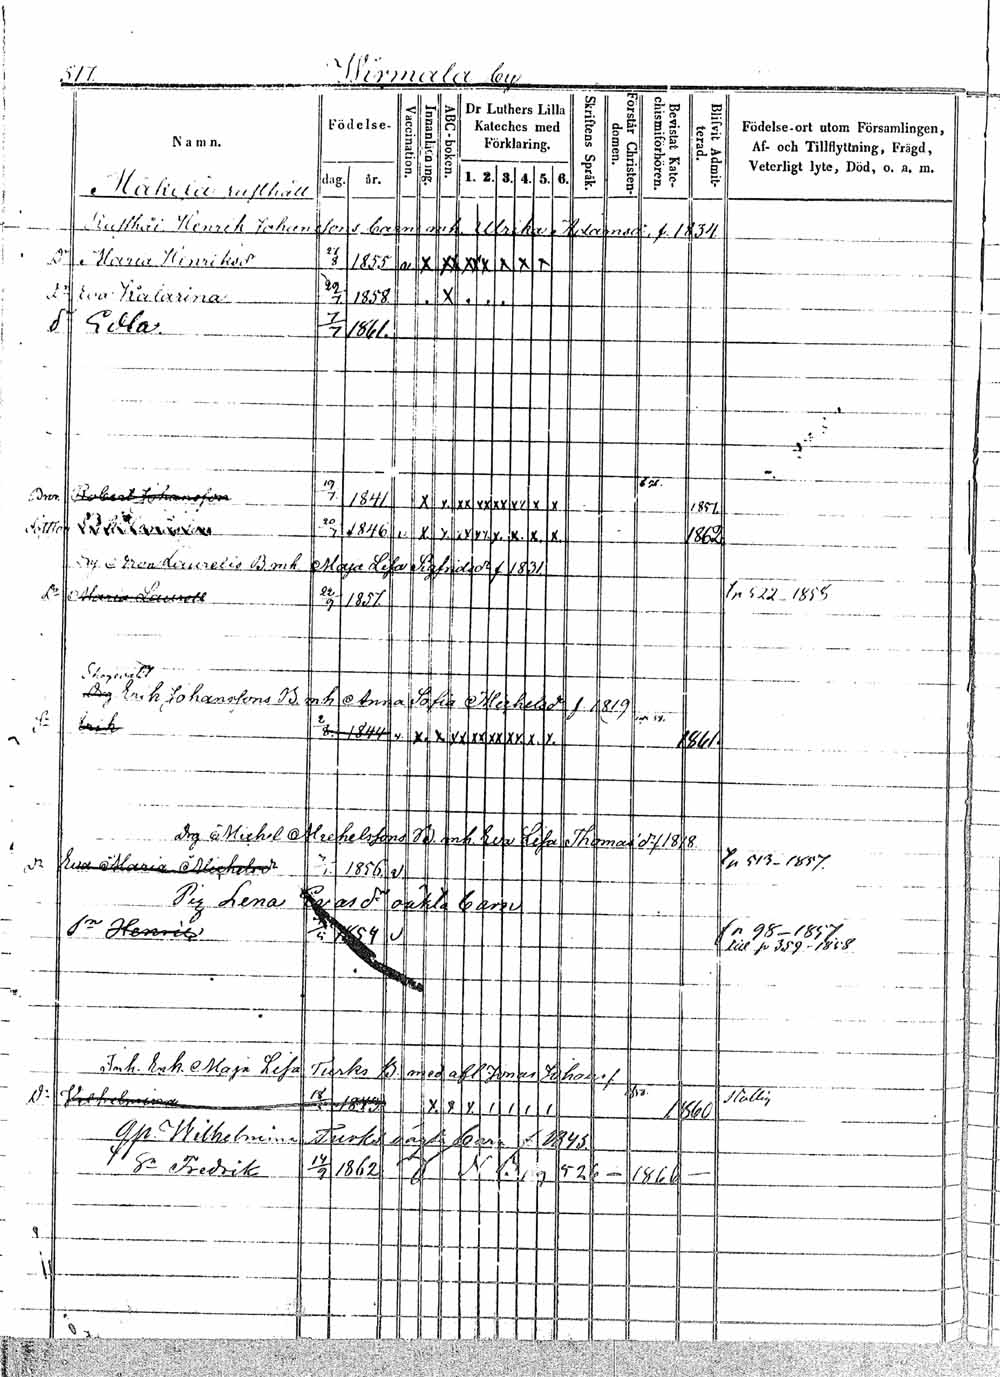 517. Wirmala by
Namn. Födelse- dag. år. Vaccination. Innanläsning. ABC-boken. Dr Luthers Lilla Kateches med Förklaring. 1. 2. 3. 4. 5. 6. Skriftens Språk. Förstår Christendomen. Bevistat Katechismiförhören. Blifvit Admitterad. Födelse-ort utom Församlingen, Af- och Tillflyttning, Frägd, Veterligt lyte, Död, o. a. m.
Mäkilä rusthåll
Henrik Johanssons barn mh. Ulrika Adamsdr f. 1834
Dr Maria Henriksdr 27/8 1855 v x xx xxx x x
Dr Eva Katarina 29/7 1858 . x . . .
dr Edla. 7/7 1861.
Bror. Robert Johansson 19/7. 1841 x x. xx xx xx xx x x 1857
20/7 1846 v x x. xx xx x. x. x. x. 1862
Laurells B mh Maja Lisa Sigfridsdr f 1831
Dr Maria Laurell 22/9 1857. fr 522-1855
Drg Erik Johanssons B mh Anna Sofia Michelsdr f 1819
Sn Erik 2/8. 1844 v x. x xx xx xx xx x. x. 1861.
Drg Michel Michelssons B. mh Eva Lisa Thomasdr f 1818
dr Eva Maria Michelsdr 1856 v fr 513-1857.
Pig Lena dr oäkta barn
sn Henrik 1854 v fr 98-1857
till p 359-1858
Inh. Enk. Maja Lisa Turks B. med afl Jonas Johansf
Dr Wilhelmina 1843 x x x 1 1 1 1 1860
Wilhelmina Turks oägta barn f. 1843
Sn Fredrik 14/9 1862 526 - 1866 -